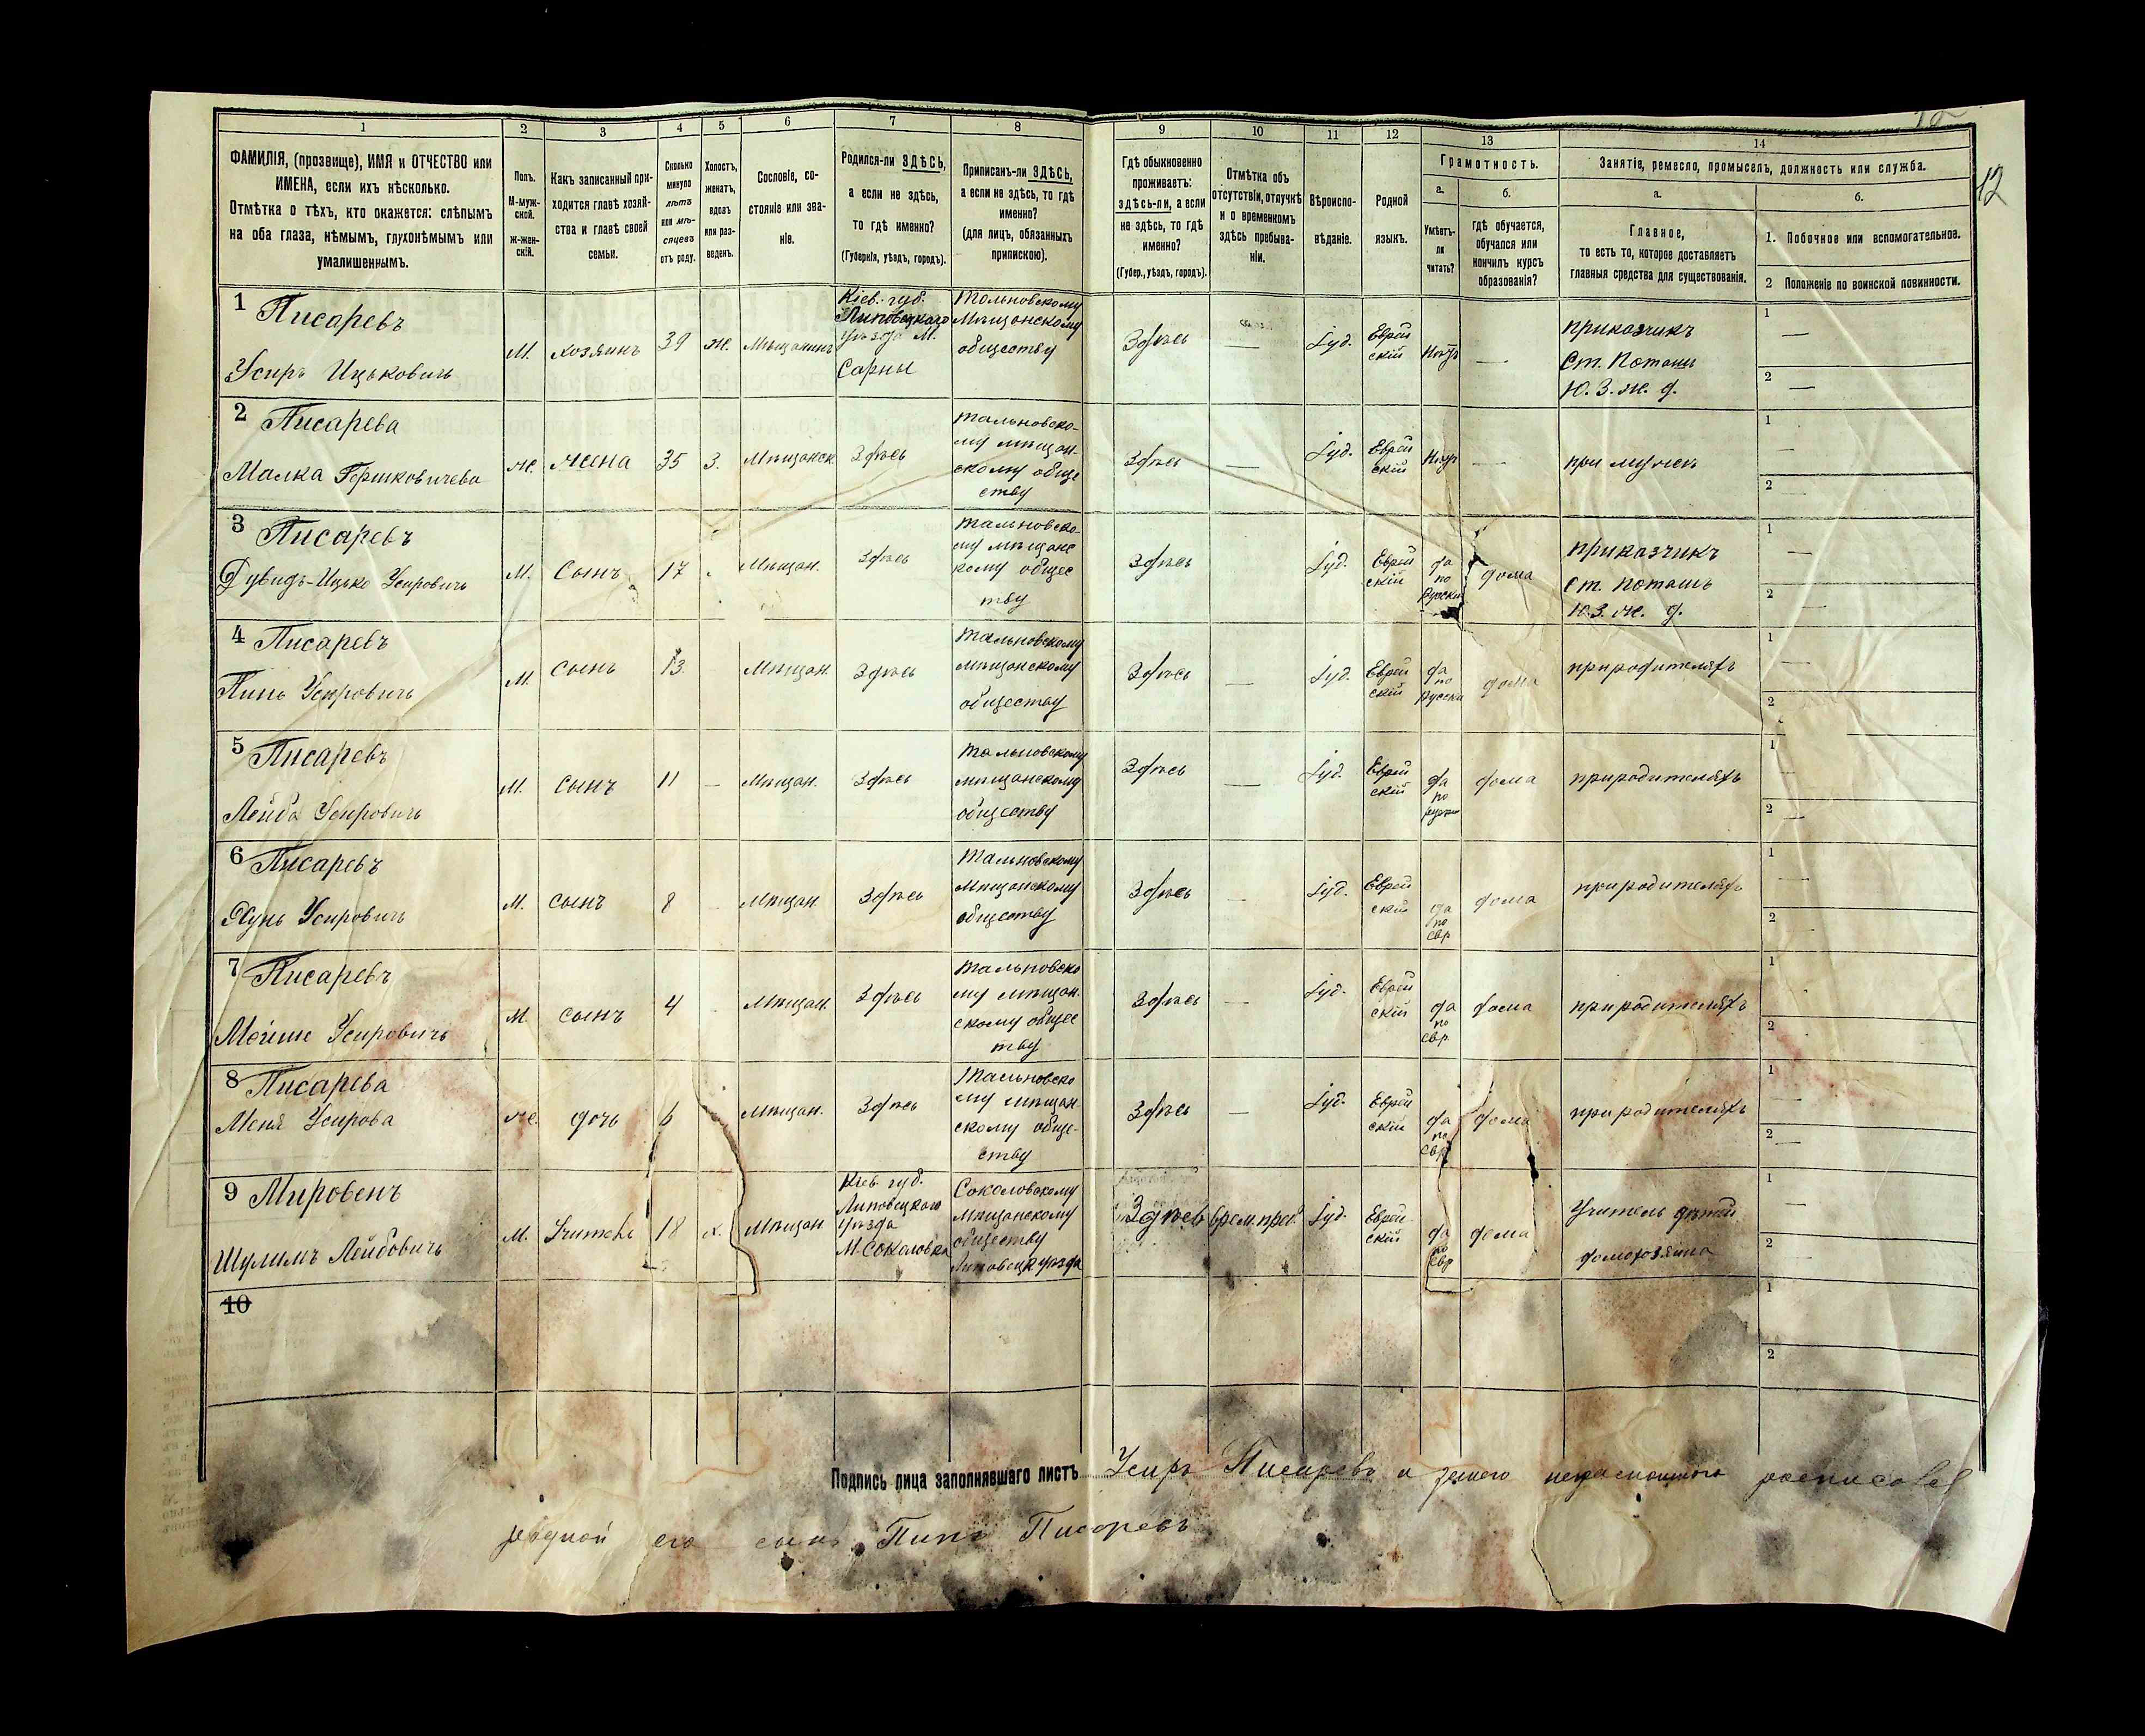 12
1 2 3 4 5 6 7 8 9 10 11 12 13 14
ФАМИЛІЯ, (прозвище), ИМЯ и ОТЧЕСТВО или
ИМЕНА, если ихъ нѣсколько.
Отмѣтка о тѣхъ, кто окажется: слѣпымъ
на оба глаза, нѣмымъ, глухонѣмымъ или
умалишеннымъ.
Полъ.
М-муж-
ской.
ж-жен-
скій.
Какъ записанный при-
ходится главѣ хозяй-
ства и главѣ своей
семьи.
Сколько
минуло
лѣтъ
или мѣ-
сяцевъ
отъ роду.
Холостъ,
женатъ,
вдовъ
или раз-
веденъ.
Сословіе, со-
стояніе или зва-
ніе.
Родился-ли ЗДѢСЬ,
а если не здѣсь,
то гдѣ именно?
(Губернія, уѣздъ, городъ).
Приписанъ-ли ЗДѢСЬ,
а если не здѣсь, то гдѣ
именно?
(для лицъ, обязанныхъ
припискою).
Гдѣ обыкновенно
проживаетъ:
здѣсь-ли, а если
не здѣсь, то гдѣ
именно?
(Губер., уѣздъ, городъ).
Отмѣтка объ
отсутствіи, отлучкѣ
и о временномъ
здѣсь пребыва-
ніи.
Вѣроиспо-
вѣданіе.
Родной
языкъ.
Грамотность.
а.
Умѣетъ-
ли
читать?
б.
Гдѣ обучается,
обучался или
кончилъ курсъ
образованія?
Занятіе, ремесло, промыселъ, должность или служба.
а.
Главное,
то есть то, которое доставляетъ
главныя средства для существованія.
б.
1. Побочное или вспомогательное.
2 Положеніе по воинской повинности.
1 Писаревъ
Усиръ Ицьковичъ
М.
хозяинъ
39
ж.
Мѣщанинъ
Кіев. губ.
Липовецкаго
уѣзда М.
Сарны
Тальновскому
Мѣщанскому
обществу
Здѣсь
—
Іуд.
Еврей
скій
Нѣтъ
—
приказчикъ
Ст. Поташъ
Ю. З. ж. д.
1 —
2 —
2 Писарева
Малка Гершковичева
ж.
жена
35
З.
Мѣщанск
Здѣсь
Тальновско-
му мѣщан-
скому обще
ству
Здѣсь
—
Іуд.
Еврей
скій
Нѣтъ
—
при мужѣ
1 —
2 —
3 Писаревъ
Дувидъ-Ицько Усировичъ
М.
Сынъ
17
Мѣщан.
Здѣсь
Тальновско-
му мѣщанс
кому общес
тву
Здѣсь
Іуд.
Еврей
скій
да
по
Русски
дома
приказчикъ
Ст. Поташъ
Ю. З. ж. д.
1 —
2 —
4 Писаревъ
Пинъ Усировичъ
М.
Сынъ
13.
Мѣщан.
Здѣсь
Тальновскому
мѣщанскому
обществу
Здѣсь
—
Іуд.
Еврей
скій
да
по
Русски
дома
при родителяхъ
1 —
2
5 Писаревъ
Лейба Усировичъ
М.
Сынъ
11
—
Мѣщан.
Здѣсь
Тальновскому
мѣщанскому
обществу
Здѣсь
—
Іуд.
Еврей
скій
да
по
дома
при родителяхъ
1 —
2 —
6 Писаревъ
Усировичъ
М.
Сынъ
8
Мѣщан.
Здѣсь
Тальновскому
Мѣщанскому
обществу
Здѣсь
—
Іуд.
Еврей
скій
да
по
Евр
дома
при родителяхъ
1 —
2 —
7 Писаревъ
Мейше Усировичъ
М.
сынъ
4
Мѣщан.
Здѣсь
Тальновско
му мѣщан.
скому общес
тву
Здѣсь
—
Іуд.
Еврей
скій
да
по
Евр
дома
при родителяхъ
1 —
2 —
8 Писарева
Меня Усирова
ж.
дочь
6
Мѣщан.
Здѣсь
Тальновско
му мѣщан-
скому обще-
ству
Здѣсь
—
Іуд.
Еврей
скій
да
по
Евр
дома
при родителяхъ
1 —
2 —
9 Мировенъ
Шулимъ Лейбовичъ
М.
Учитель
18
х.
Мѣщан
Кіев губ.
Липовецкаго
уѣзда
М. Соколовка
Соколовскому
Мѣщанскому
обществу
Липовец уѣзда
Здѣсь
врем. преб.
Іуд.
Еврей-
скій
да
по
Евр
дома
Учитель дѣтей
домохозяина
1 —
2 —
10
1
2
Подпись лица заполнявшаго листъ Усиръ Писаревъ а за него неграмотнаго росписался
родной его сынъ Пинъ Писаревъ